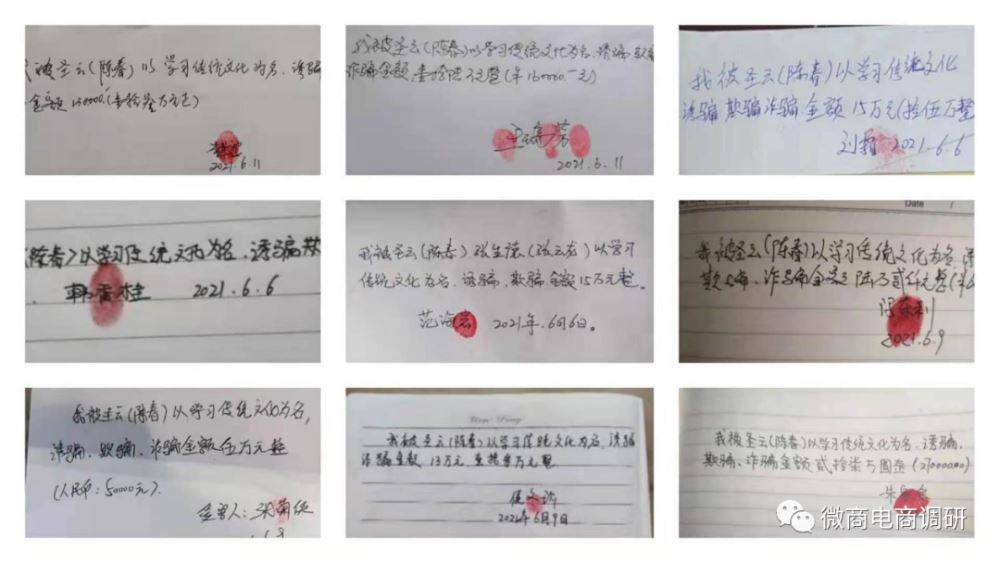 我被圣云(陈春)以学习传统文化为名、诱骗
金额130000.(壹拾叁万元正)
2021.6.11
我被圣云(陈春)以学习传统文化为名,诱骗 欺
诈骗金额 壹拾 万元整 (¥160000.一元)
2021.6.11
我被圣云(陈春)以学习传统文化
诱骗 欺骗诈骗金额15万元(拾伍万整
刘霜 2021.6.6
(陈春)以学习传统文化为名、诱骗欺
韩香桂 2021.6.6
我被圣云(陈春)张生德(张云友)以学习
传统文化为名.诱骗,欺骗金额15万元整.
范海 2021年.6月6日。
Date
我被圣云(陈春)以学习传统文化为名.诱
欺骗、诈骗金额 万贰仟元整(
2021.6.9
我被圣云(陈春)以学习传统文化为名,
诱骗、欺骗、诈骗金额伍万元整
(人民币:50000元).
受害人:
我被圣云(陈春)以学习传统文化为名、诱骗
诈骗金额 13万元 壹拾叁万元整
2021年6月9日
我被圣云(陈春)以学习传统文化为名.诱骗.
欺骗、诈骗金额贰拾柒万圆整(270000.00)
微商电商调研